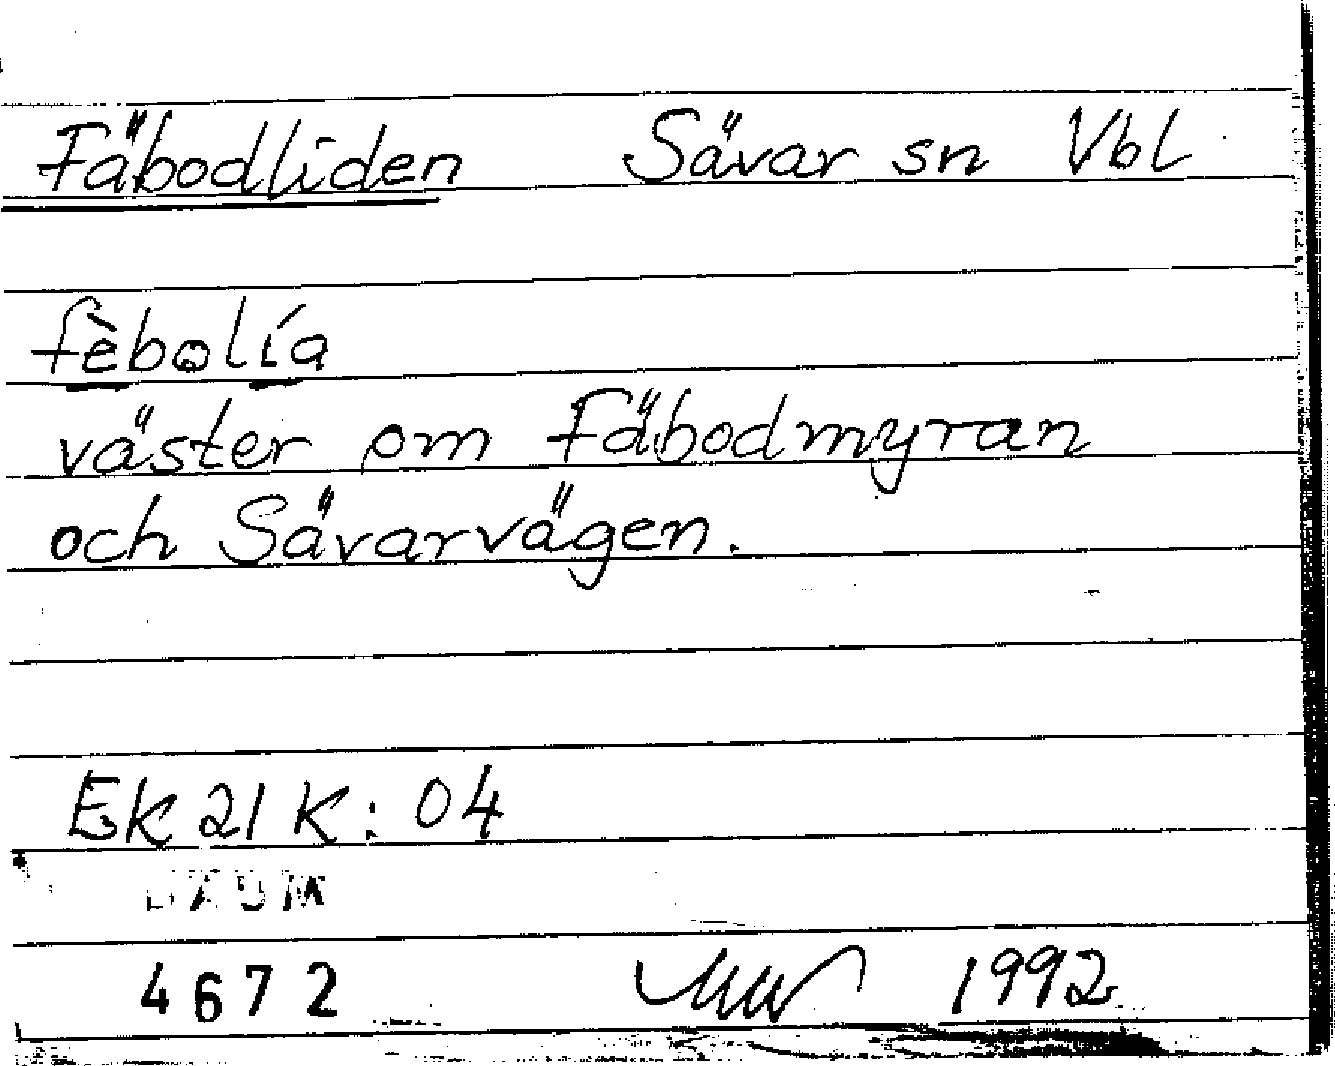 Fäbodliden Sävar sn Vbl
fèbolía
väster om Fäbodmyran
och Sävarvägen.
Ek 21 K: 04
DAUM
4672 1992